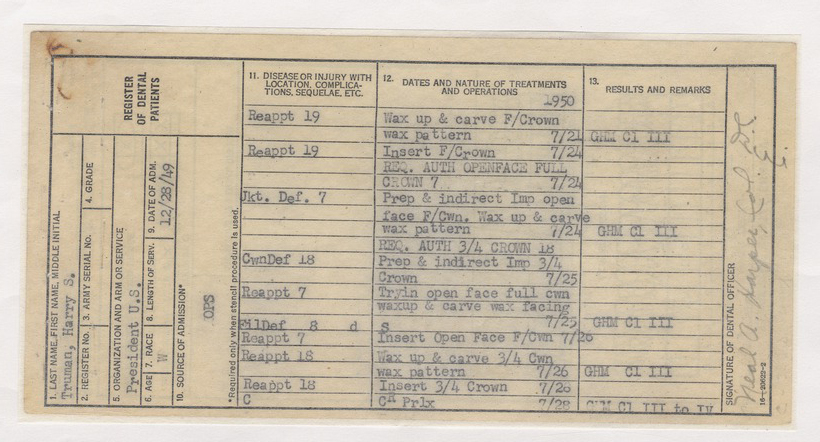 REGISTER
OF DENTAL
PATIENTS
1. LAST NAME, FIRST NAME, MIDDLE INITIAL
Truman, Harry S.
2. REGISTER NO.
3. ARMY SERIAL NO.
4. GRADE
5. ORGANIZATION AND ARM OR SERVICE
President U.S.
6. AGE
7. RACE
W
8. LENGTH OF SERV.
9. DATE OF ADM.
12/28/49
10. SOURCE OF ADMISSION*
OPS
*Required only when stencil procedure is used.
11. DISEASE OR INJURY WITH
LOCATION, COMPLICA-
TIONS, SEQUELAE, ETC.
12. DATES AND NATURE OF TREATMENTS
AND OPERATIONS
1950
13.
RESULTS AND REMARKS
Reappt 19 Wax up & carve F/Crown
wax pattern 7/21 GHM Cl III
Reappt 19 Insert F/Crown 7/24
REQ. AUTH OPENFACE FULL
CROWN 7 7/24
Jkt. Def. 7 Prep & indirect Imp open
face F/Cwn. Wax up & carve
wax pattern 7/24 GHM Cl III
REQ. AUTH 3/4 CROWN 18
CwnDef 18 Prep & indirect Imp 3/4
Crown 7/25
Reappt 7 Tryin open face full cwn
waxup & carve wax facing
7/25 GHM Cl III
FilDef 8 d s
Reappt 7 Insert Open Face F/Cwn 7/26
Reappt 18 Wax up & carve 3/4 Cwn
wax pattern 7/26 GHM Cl III
Reappt 18 Insert 3/4 Crown 7/28
C Prlx 7/28 GHM Cl III to IV
SIGNATURE OF DENTAL OFFICER
Neal A. Harper, Col. D.C.
16-20623-2